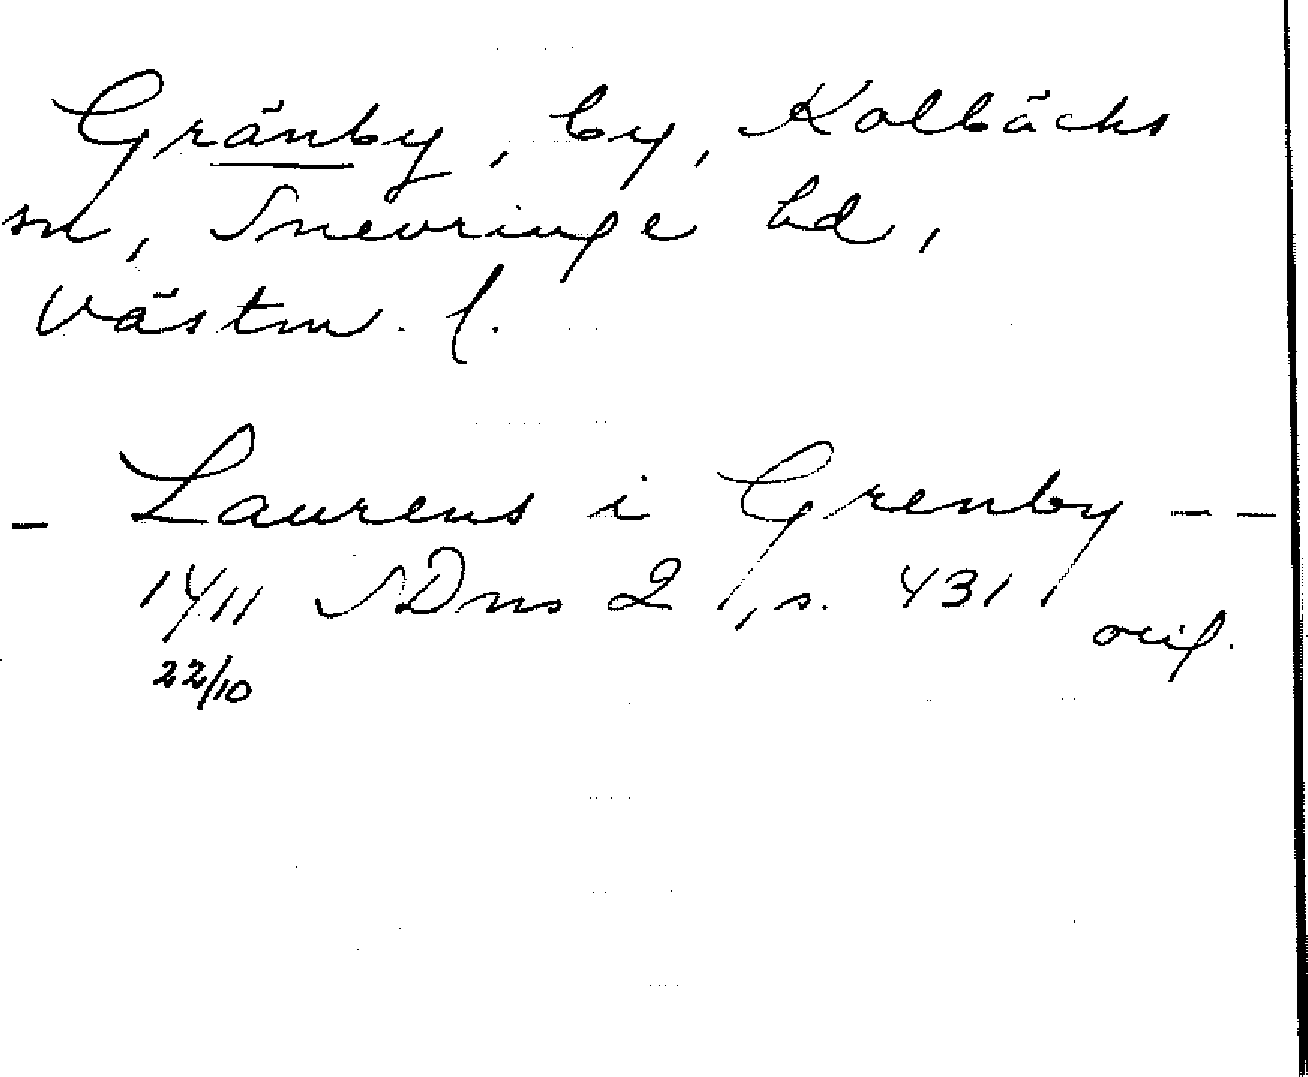 Gränby, by, Kolbäcks
sn, Snevringe hd,
Västm. l.
- Laurens i Grenby --
1411 SDns 2, s. 431
orig.
22/10